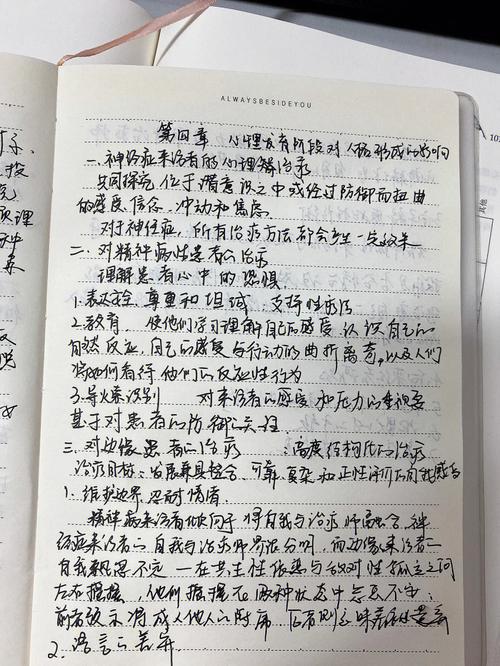 ALWAYSBESIDEYOU
第四章 心理发育阶段对人格形成的影响
一.神经症来访者的心理解治疗
共同探究位于潜意识之中或经过防御而扭曲
的感受、信念、冲动和焦虑
对于神经症,所有治疗方法都会产生一定效果
二.对精神病性患者的治疗
理解患者心中的恐惧
1.表达安全、尊重和坦诚 支持性疗法
2.教育 使他们学习理解自己的感受,认识自己的
自然反应,自己的感受与行动的曲折离奇,以及人们
将如何看待他们的反应性行为
3.导火索识别 对来访者的感受和压力的重视要
基于对患者的防御的
三.对边缘患者的治疗 高度结构化的治疗
治疗目标:发展兼具整合、可靠、复杂和正性评价的自我感
1.维护边界,忍耐情绪
精神病来访者倾向于将自我与治疗师融合,神
经症来访者的自我与治疗师界限分明,而边缘来访者
自我飘忽不定—在共生性依恋与敌对性孤立之间
左右摇摆,他们摇摆在两种状态中忐忑不安:
前者预示得成人他人的附庸,后者则意味着
2.语言的差异
其他
10